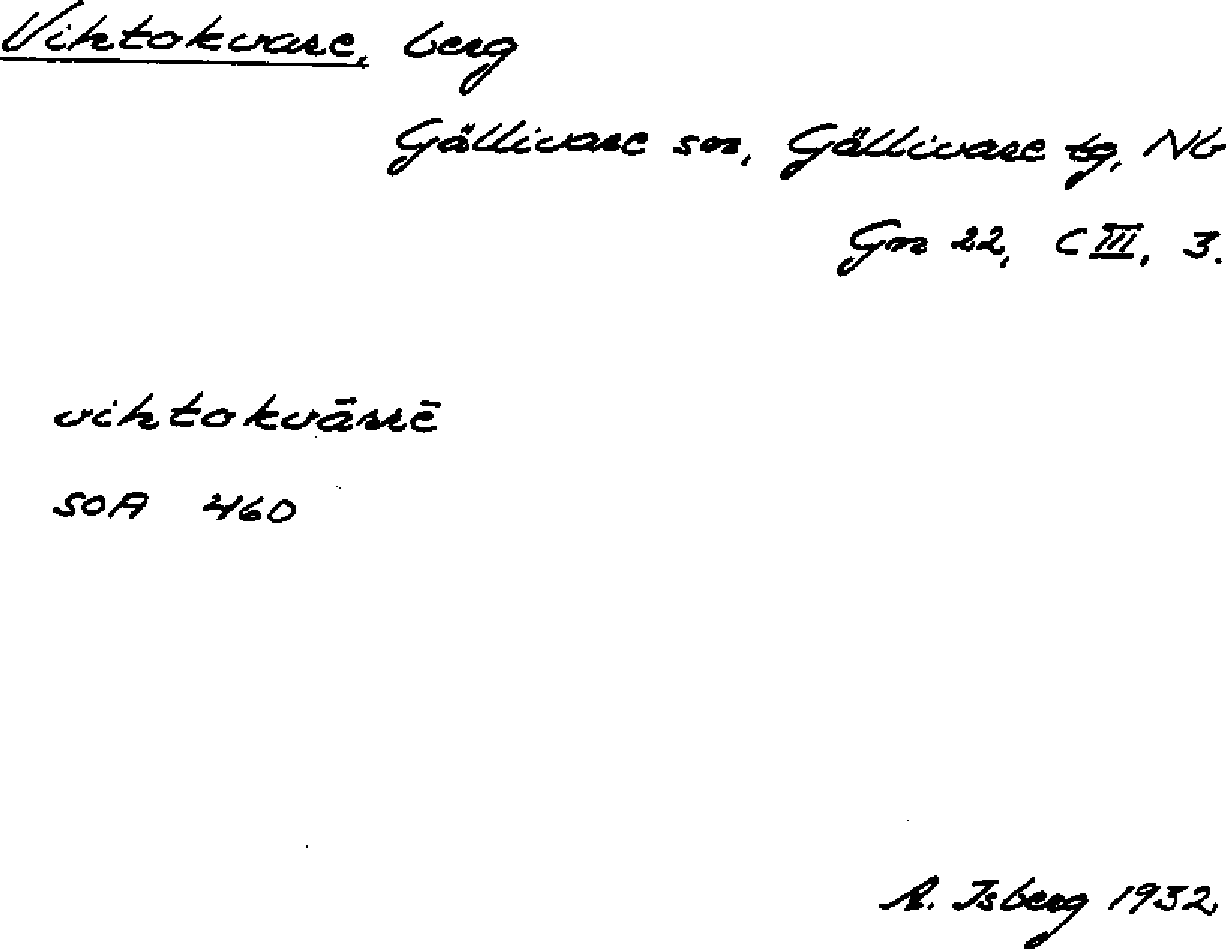 Vihtokvare, berg
Gällivare sn, Gällivare tg, Nb
Gn 22, C III, 3.
vihtokvārrē
SOA 460
A. Isberg 1932